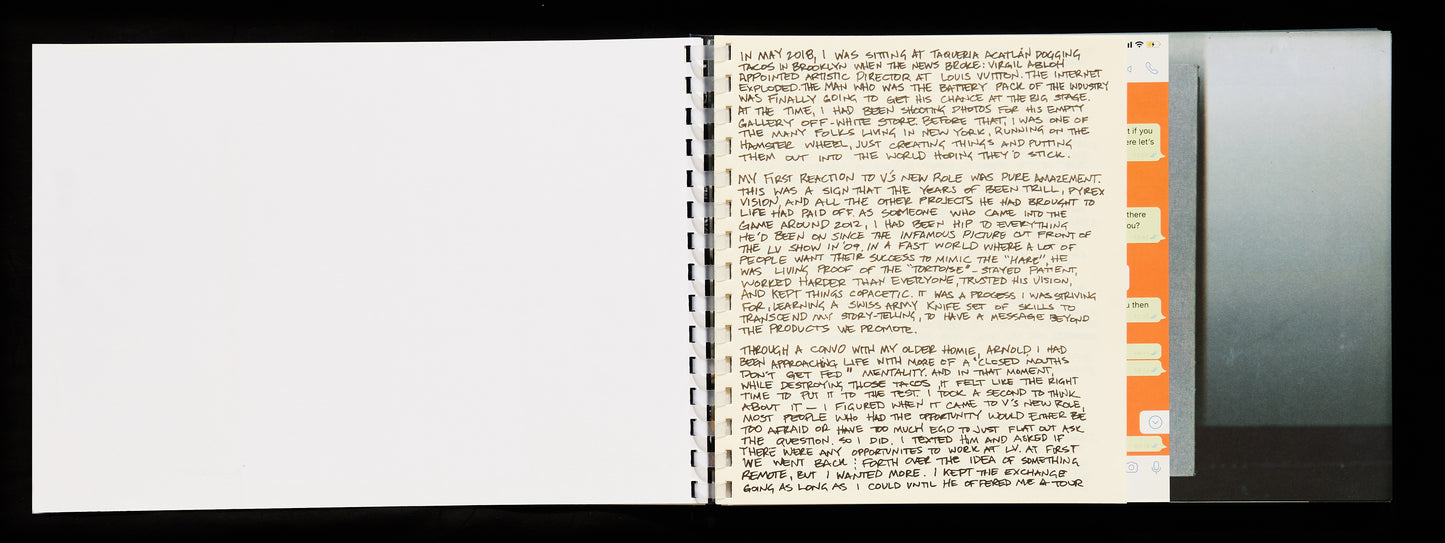 IN MAY 2018, I WAS SITTING AT TAQUERIA ACATLÁN DOGGING
TACOS IN BROOKLYN WHEN THE NEWS BROKE: VIRGIL ABLOH
APPOINTED ARTISTIC DIRECTOR AT LOUIS VUITTON. THE INTERNET
EXPLODED. THE MAN WHO WAS THE BATTERY PACK OF THE INDUSTRY
WAS FINALLY GOING TO GET HIS CHANCE AT THE BIG STAGE.
AT THE TIME, I HAD BEEN SHOOTING PHOTOS FOR HIS EMPTY
GALLERY OFF-WHITE STORE. BEFORE THAT, I WAS ONE OF
THE MANY FOLKS LIVING IN NEW YORK, RUNNING ON THE
HAMSTER WHEEL, JUST CREATING THINGS AND PUTTING
THEM OUT INTO THE WORLD HOPING THEY'D STICK.
MY FIRST REACTION TO V'S NEW ROLE WAS PURE AMAZEMENT.
THIS WAS A SIGN THAT THE YEARS OF BEEN TRILL, PYREX
VISION, AND ALL THE OTHER PROJECTS HE HAD BROUGHT TO
LIFE HAD PAID OFF. AS SOMEONE WHO CAME INTO THE
GAME AROUND 2012, I HAD BEEN HIP TO EVERYTHING
HE'D BEEN ON SINCE THE INFAMOUS PICTURE OUT FRONT OF
THE LV SHOW IN '09. IN A FAST WORLD WHERE A LOT OF
PEOPLE WANT THEIR SUCCESS TO MIMIC THE "HARE", HE
WAS LIVING PROOF OF THE "TORTOISE" - STAYED PATIENT,
WORKED HARDER THAN EVERYONE, TRUSTED HIS VISION,
AND KEPT THINGS COPACETIC. IT WAS A PROCESS I WAS STRIVING
FOR, LEARNING A SWISS ARMY KNIFE SET OF SKILLS TO
TRANSCEND MY STORY-TELLING, TO HAVE A MESSAGE BEYOND
THE PRODUCTS WE PROMOTE.
THROUGH A CONVO WITH MY OLDER HOMIE, ARNOLD, I HAD
BEEN APPROACHING LIFE WITH MORE OF A "CLOSED MOUTHS
DON'T GET FED" MENTALITY. AND IN THAT MOMENT,
WHILE DESTROYING THOSE TACOS, IT FELT LIKE THE RIGHT
TIME TO PUT IT TO THE TEST. I TOOK A SECOND TO THINK
ABOUT IT — I FIGURED WHEN IT CAME TO V'S NEW ROLE,
MOST PEOPLE WHO HAD THE OPPORTUNITY WOULD EITHER BE
TOO AFRAID OR HAVE TOO MUCH EGO TO JUST FLAT OUT ASK
THE QUESTION. SO I DID. I TEXTED HIM AND ASKED IF
THERE WERE ANY OPPORTUNITES TO WORK AT LV. AT FIRST
WE WENT BACK & FORTH OVER THE IDEA OF SOMETHING
REMOTE, BUT I WANTED MORE. I KEPT THE EXCHANGE
GOING AS LONG AS I COULD UNTIL HE OFFERED ME A TOUR
t if you
ere let's
there
ou?
u then